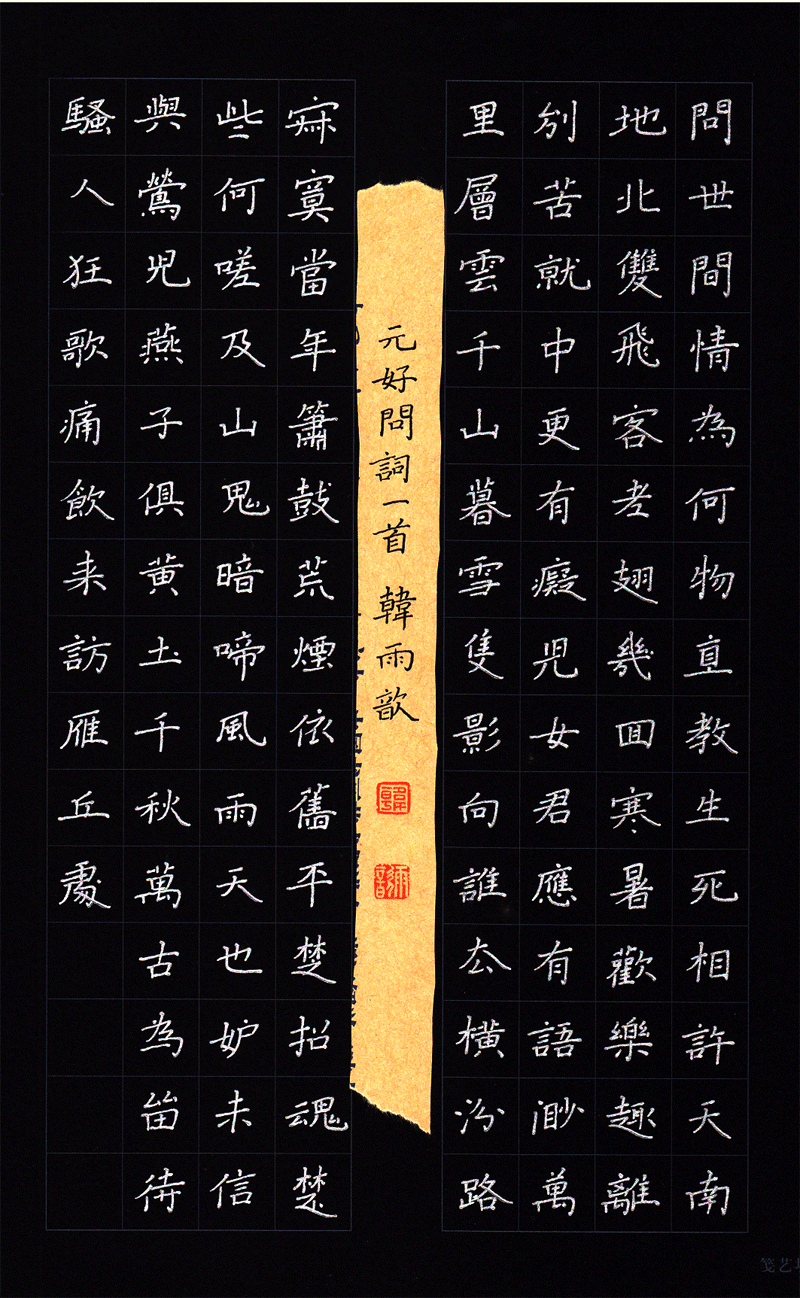 問世間情為何物直教生死相許天南
地北雙飛客老翅幾囬寒暑歡樂趣離
別苦就中更有癡兒女君應有語渺萬
里層雲千山暮雪隻影向誰去橫汾路
元好問詞一首 韓雨歆
寂寞當年簫鼓荒煙依舊平楚招魂楚
些何嗟及山鬼暗啼風雨天也妒未信
與鶯兒燕子俱黃土千秋萬古為留待
騷人狂歌痛飲来訪雁丘處
笺艺